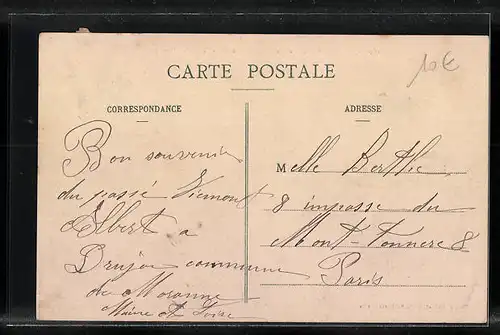 10€
CARTE POSTALE
CORRESPONDANCE
ADRESSE
Bon souvenir
du passé Viemont
Albert a
commune
de Moranne
Maine et Loire
Melle Berthe
8 impasse du
Mont-Tonnere 8
Paris